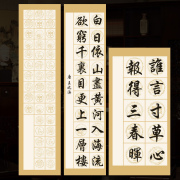 白日依山盡黃河入海流
欲窮千裏目更上一層樓
誰言寸草心
報得三春暉